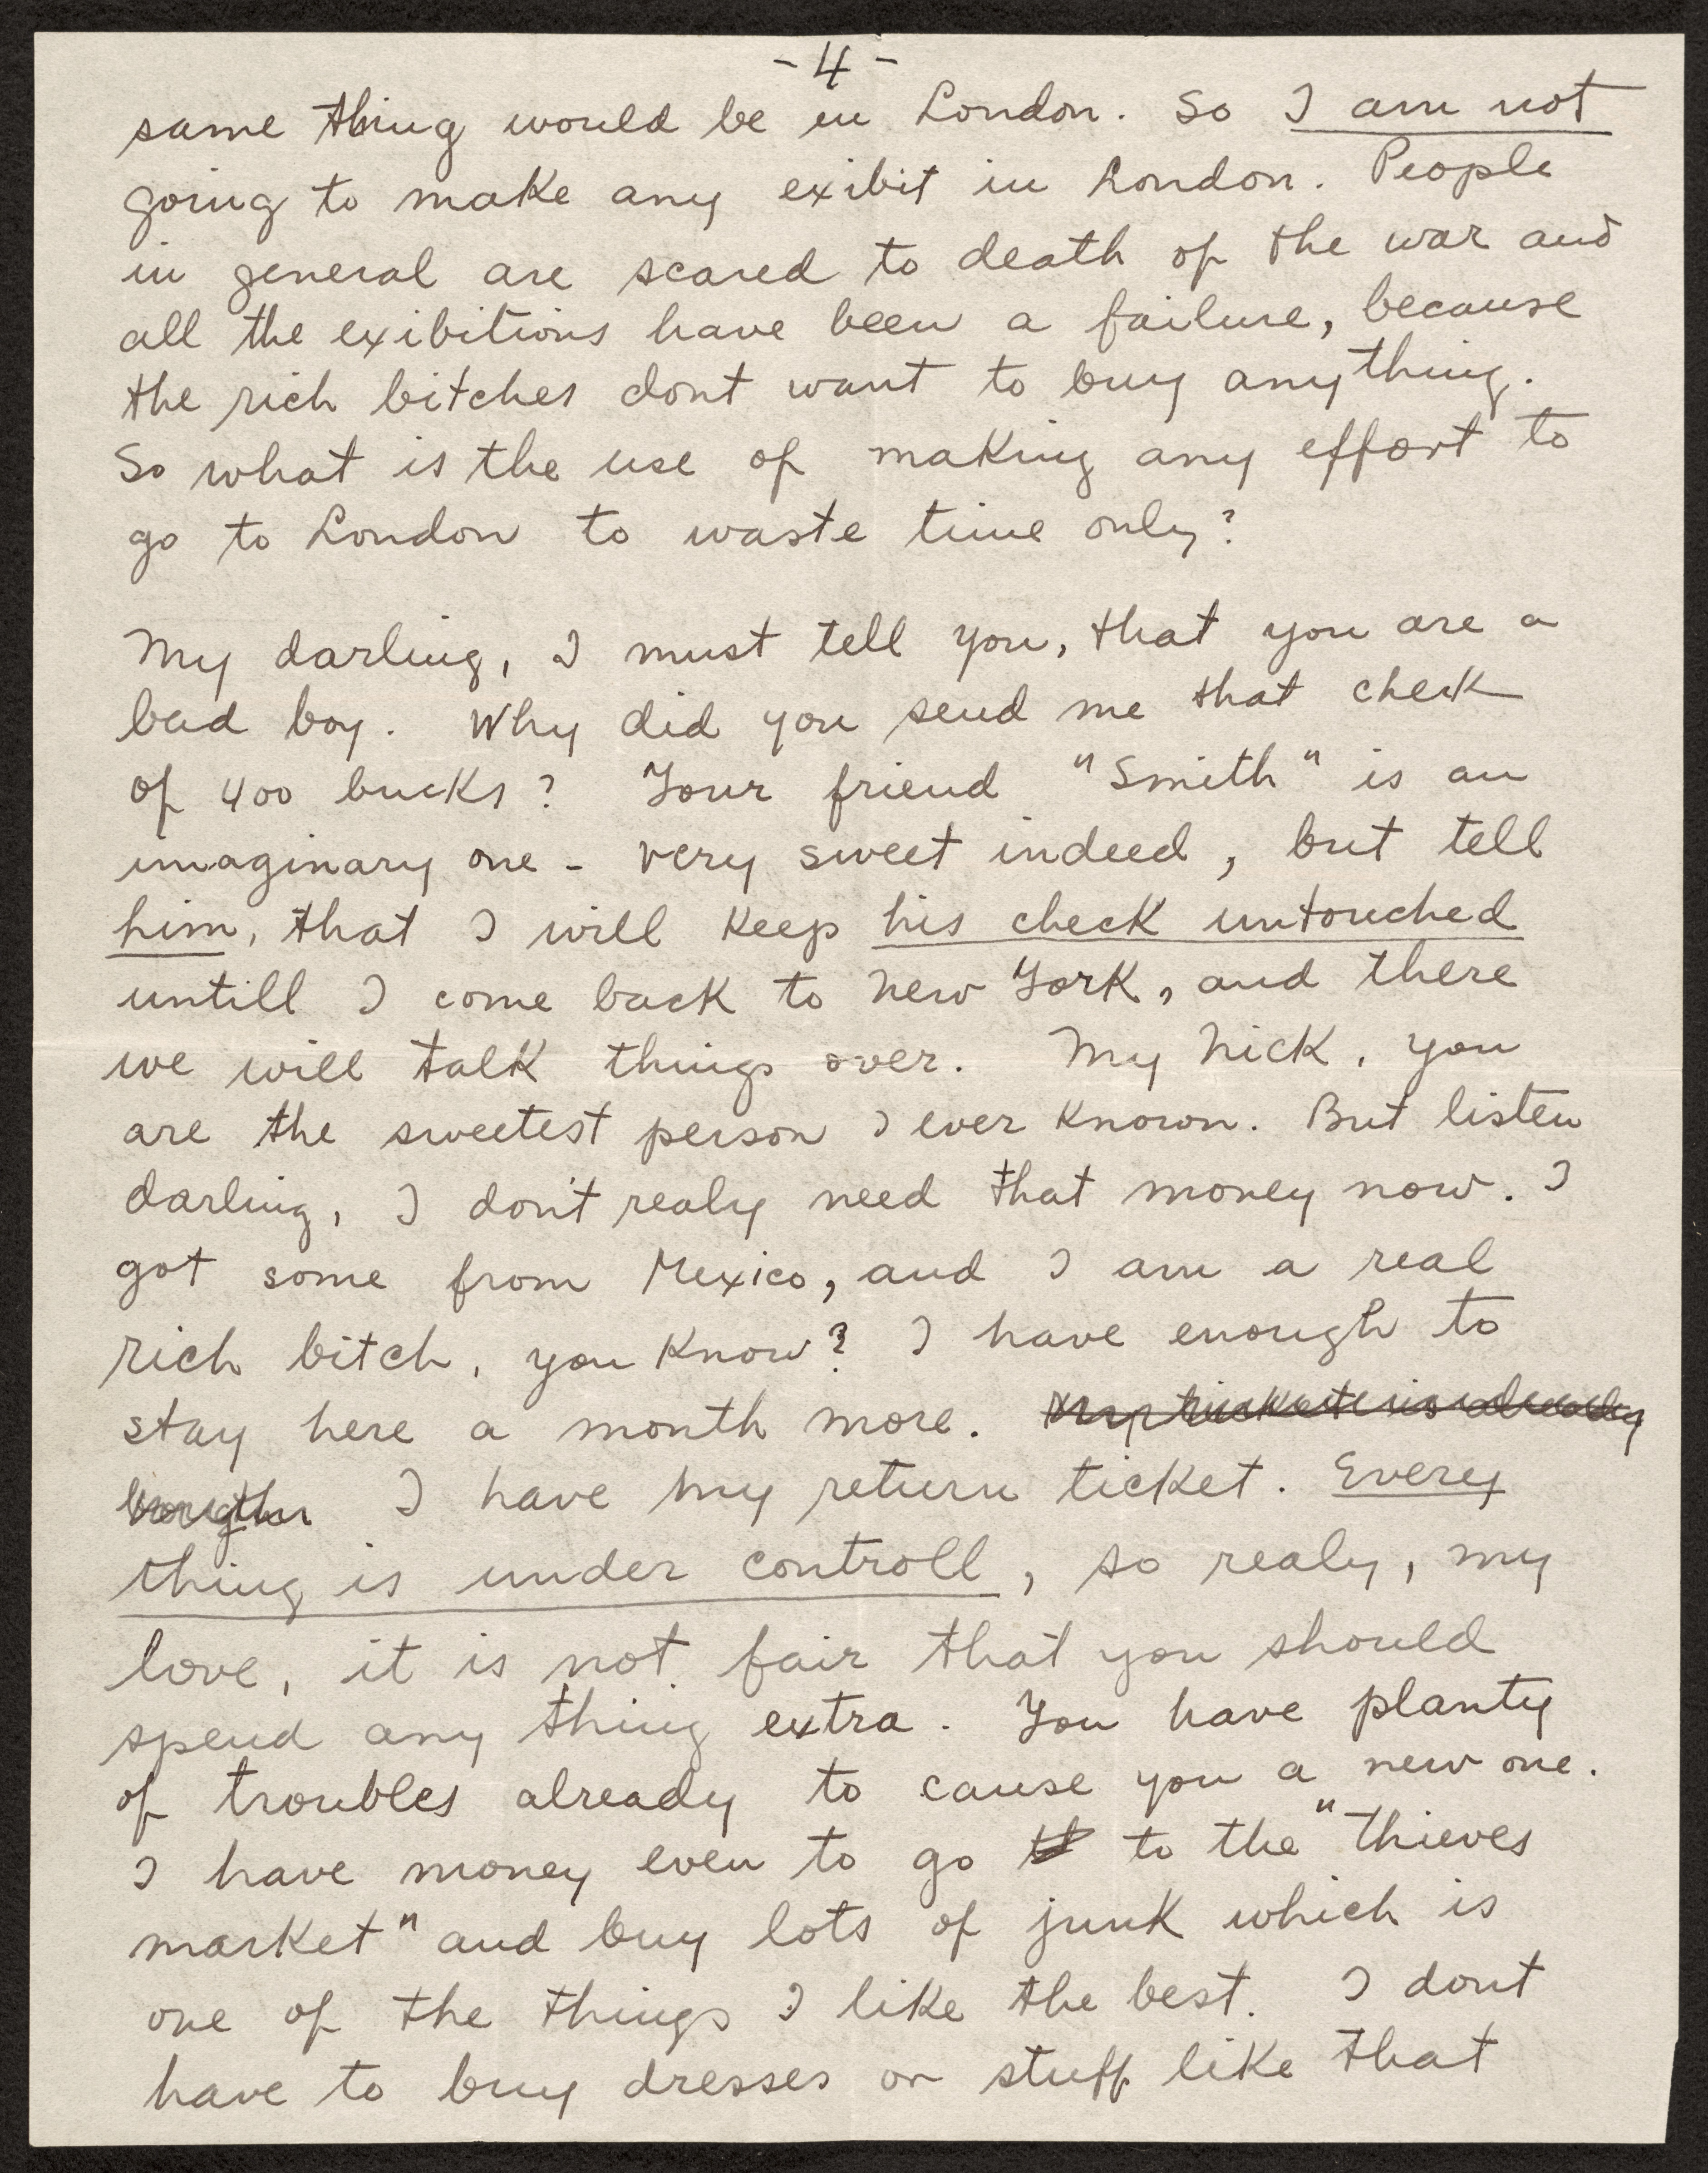 - 4 -
same thing would be in London. So I am not
going to make any exibit in London. People
in general are scared to death of the war and
all the exibitions have been a failure, because
the rich bitches dont want to buy anything.
So what is the use of making any effort to
go to London to waste time only?
My darling, I must tell you, that you are a
bad boy. Why did you send me that check
of 400 bucks? Your friend "Smith" is an
imaginary one - very sweet indeed, but tell
him, that I will keep his check untouched
untill I come back to New York, and there
we will talk things over. My Nick, you
are the sweetest person I ever known. But listen
darling, I don't realy need that money now. I
got some from Mexico, and I am a real
rich bitch, you know? I have enough to
stay here a month more. is already
I have my return ticket. Every
thing is under controll, so realy, my
love, it is not fair that you should
spend any thing extra. You have planty
of troubles already to cause you a new one.
I have money even to go to the "thieves
market" and buy lots of junk which is
one of the things I like the best. I dont
have to buy dresses or stuff like that